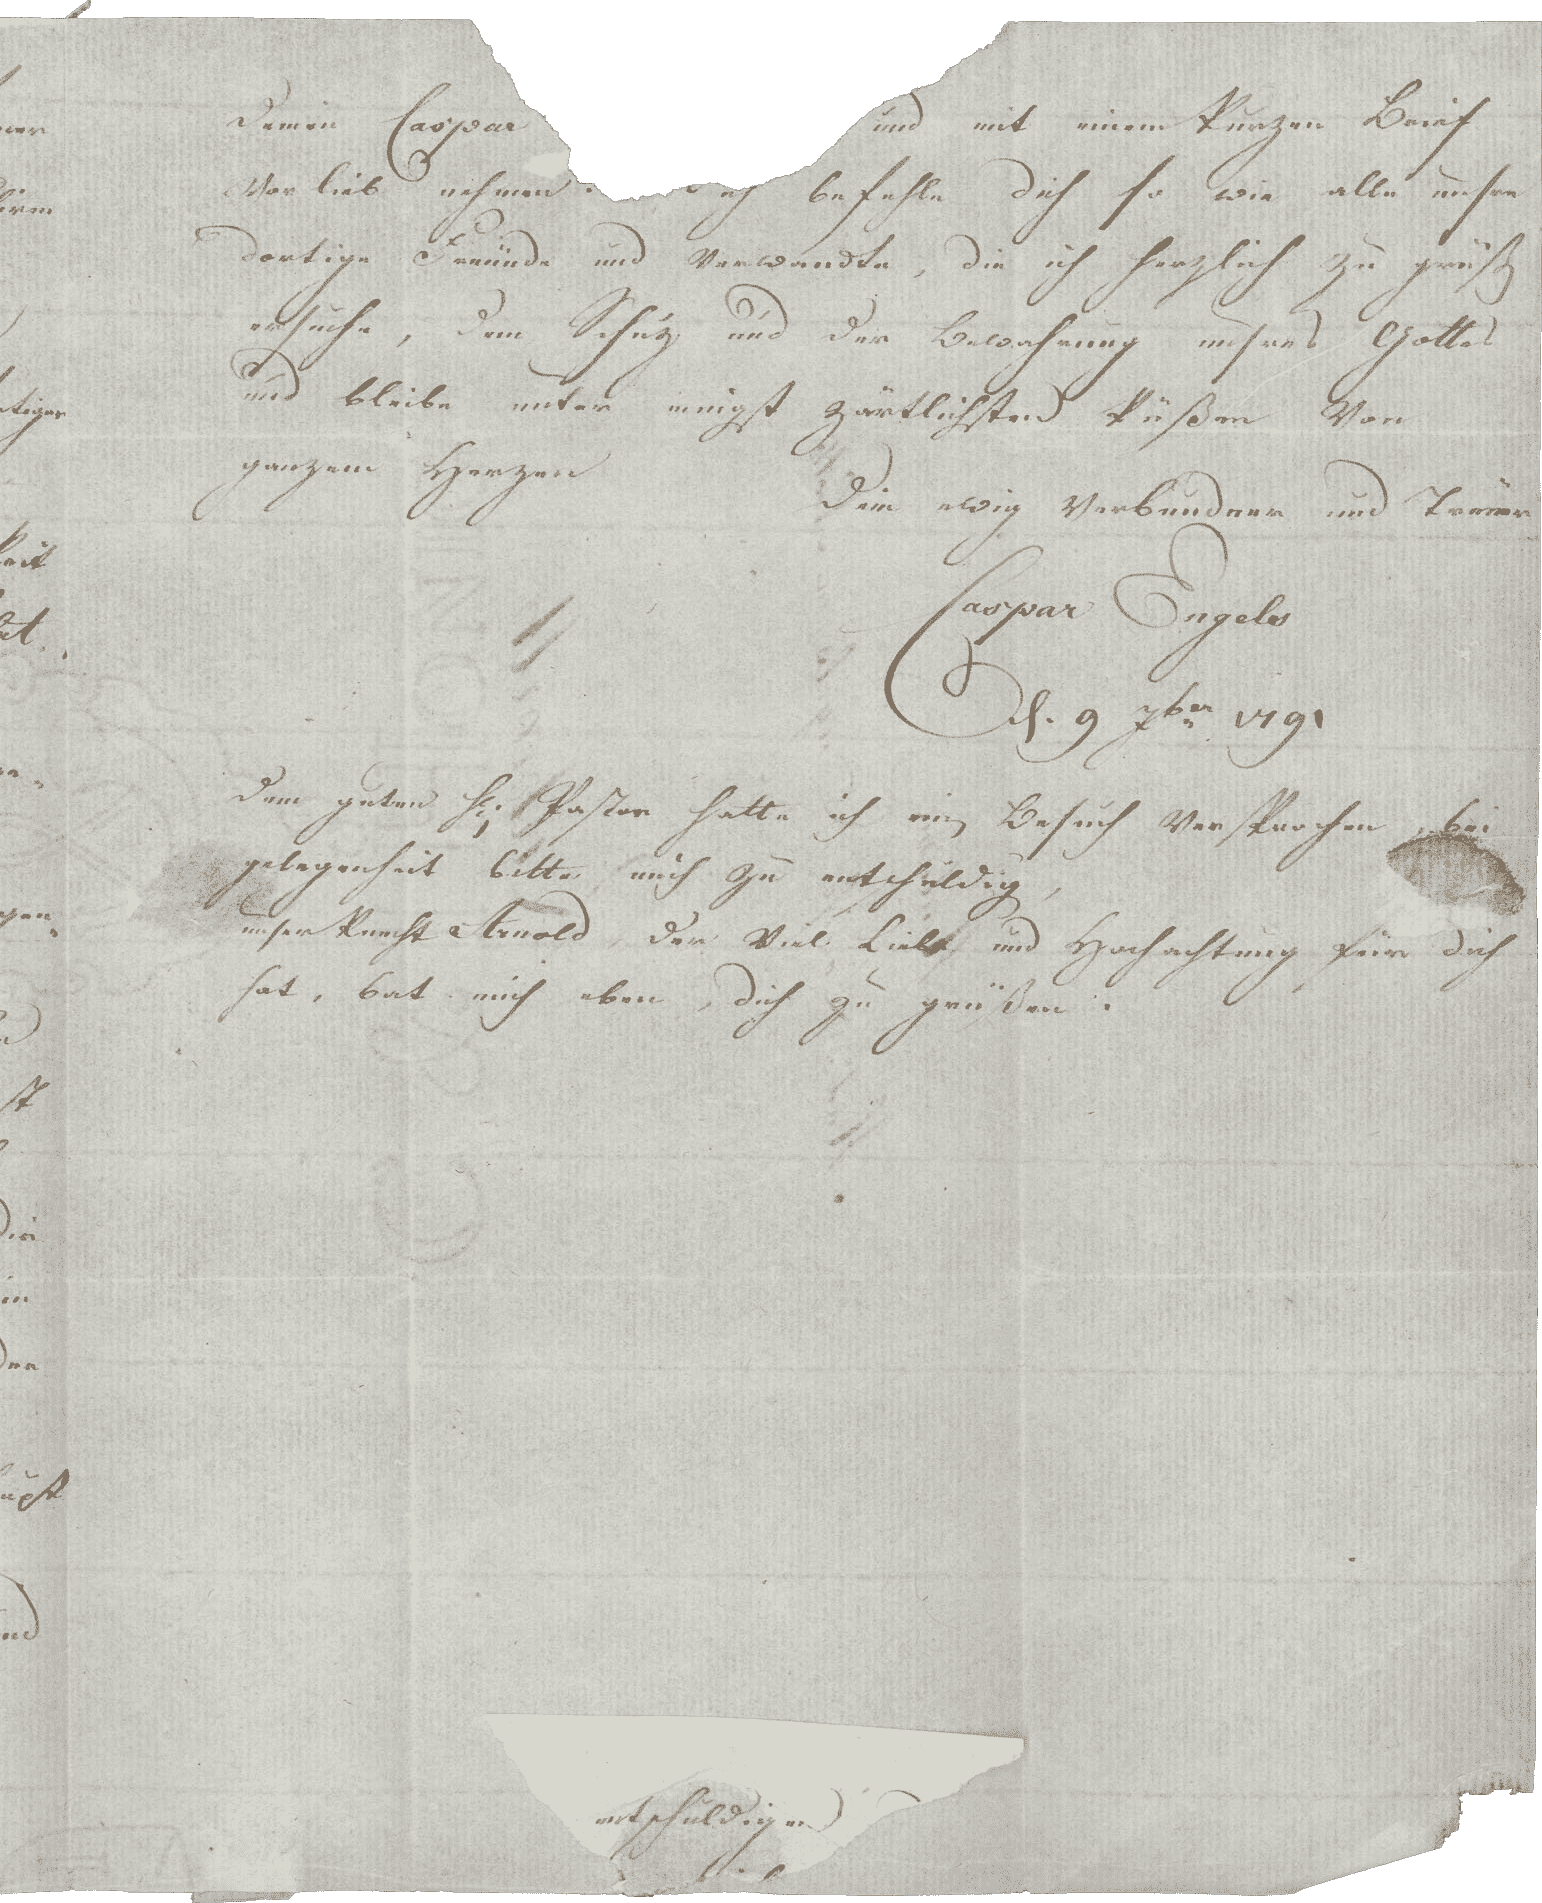 Deinen Caspar und mit einem kurzen Brief
Vor lieb nehmen. ich befehle dich so wie alle unsre
dortige Freunde und Verwandte, die ich herzlich zu grüß
ersuche, dem Schuz und der Bewahrung unsres Gottes
und bleibe unter innigst zärtlichsten Küßen Von
ganzem Herzen
Dein ewig Verbundner und Treuer
Caspar Engels
d. 9 7ber 1791
Dem guten H. Pastor hatte ich ein Besuch Versprochen, bei
gelegenheit bitte mich zu entschuldig,
unser Knecht Arnold, der Viel Liebe und Hochachtung für dich
hat, bat mich eben, dich zu grüßen.
entschuldigen